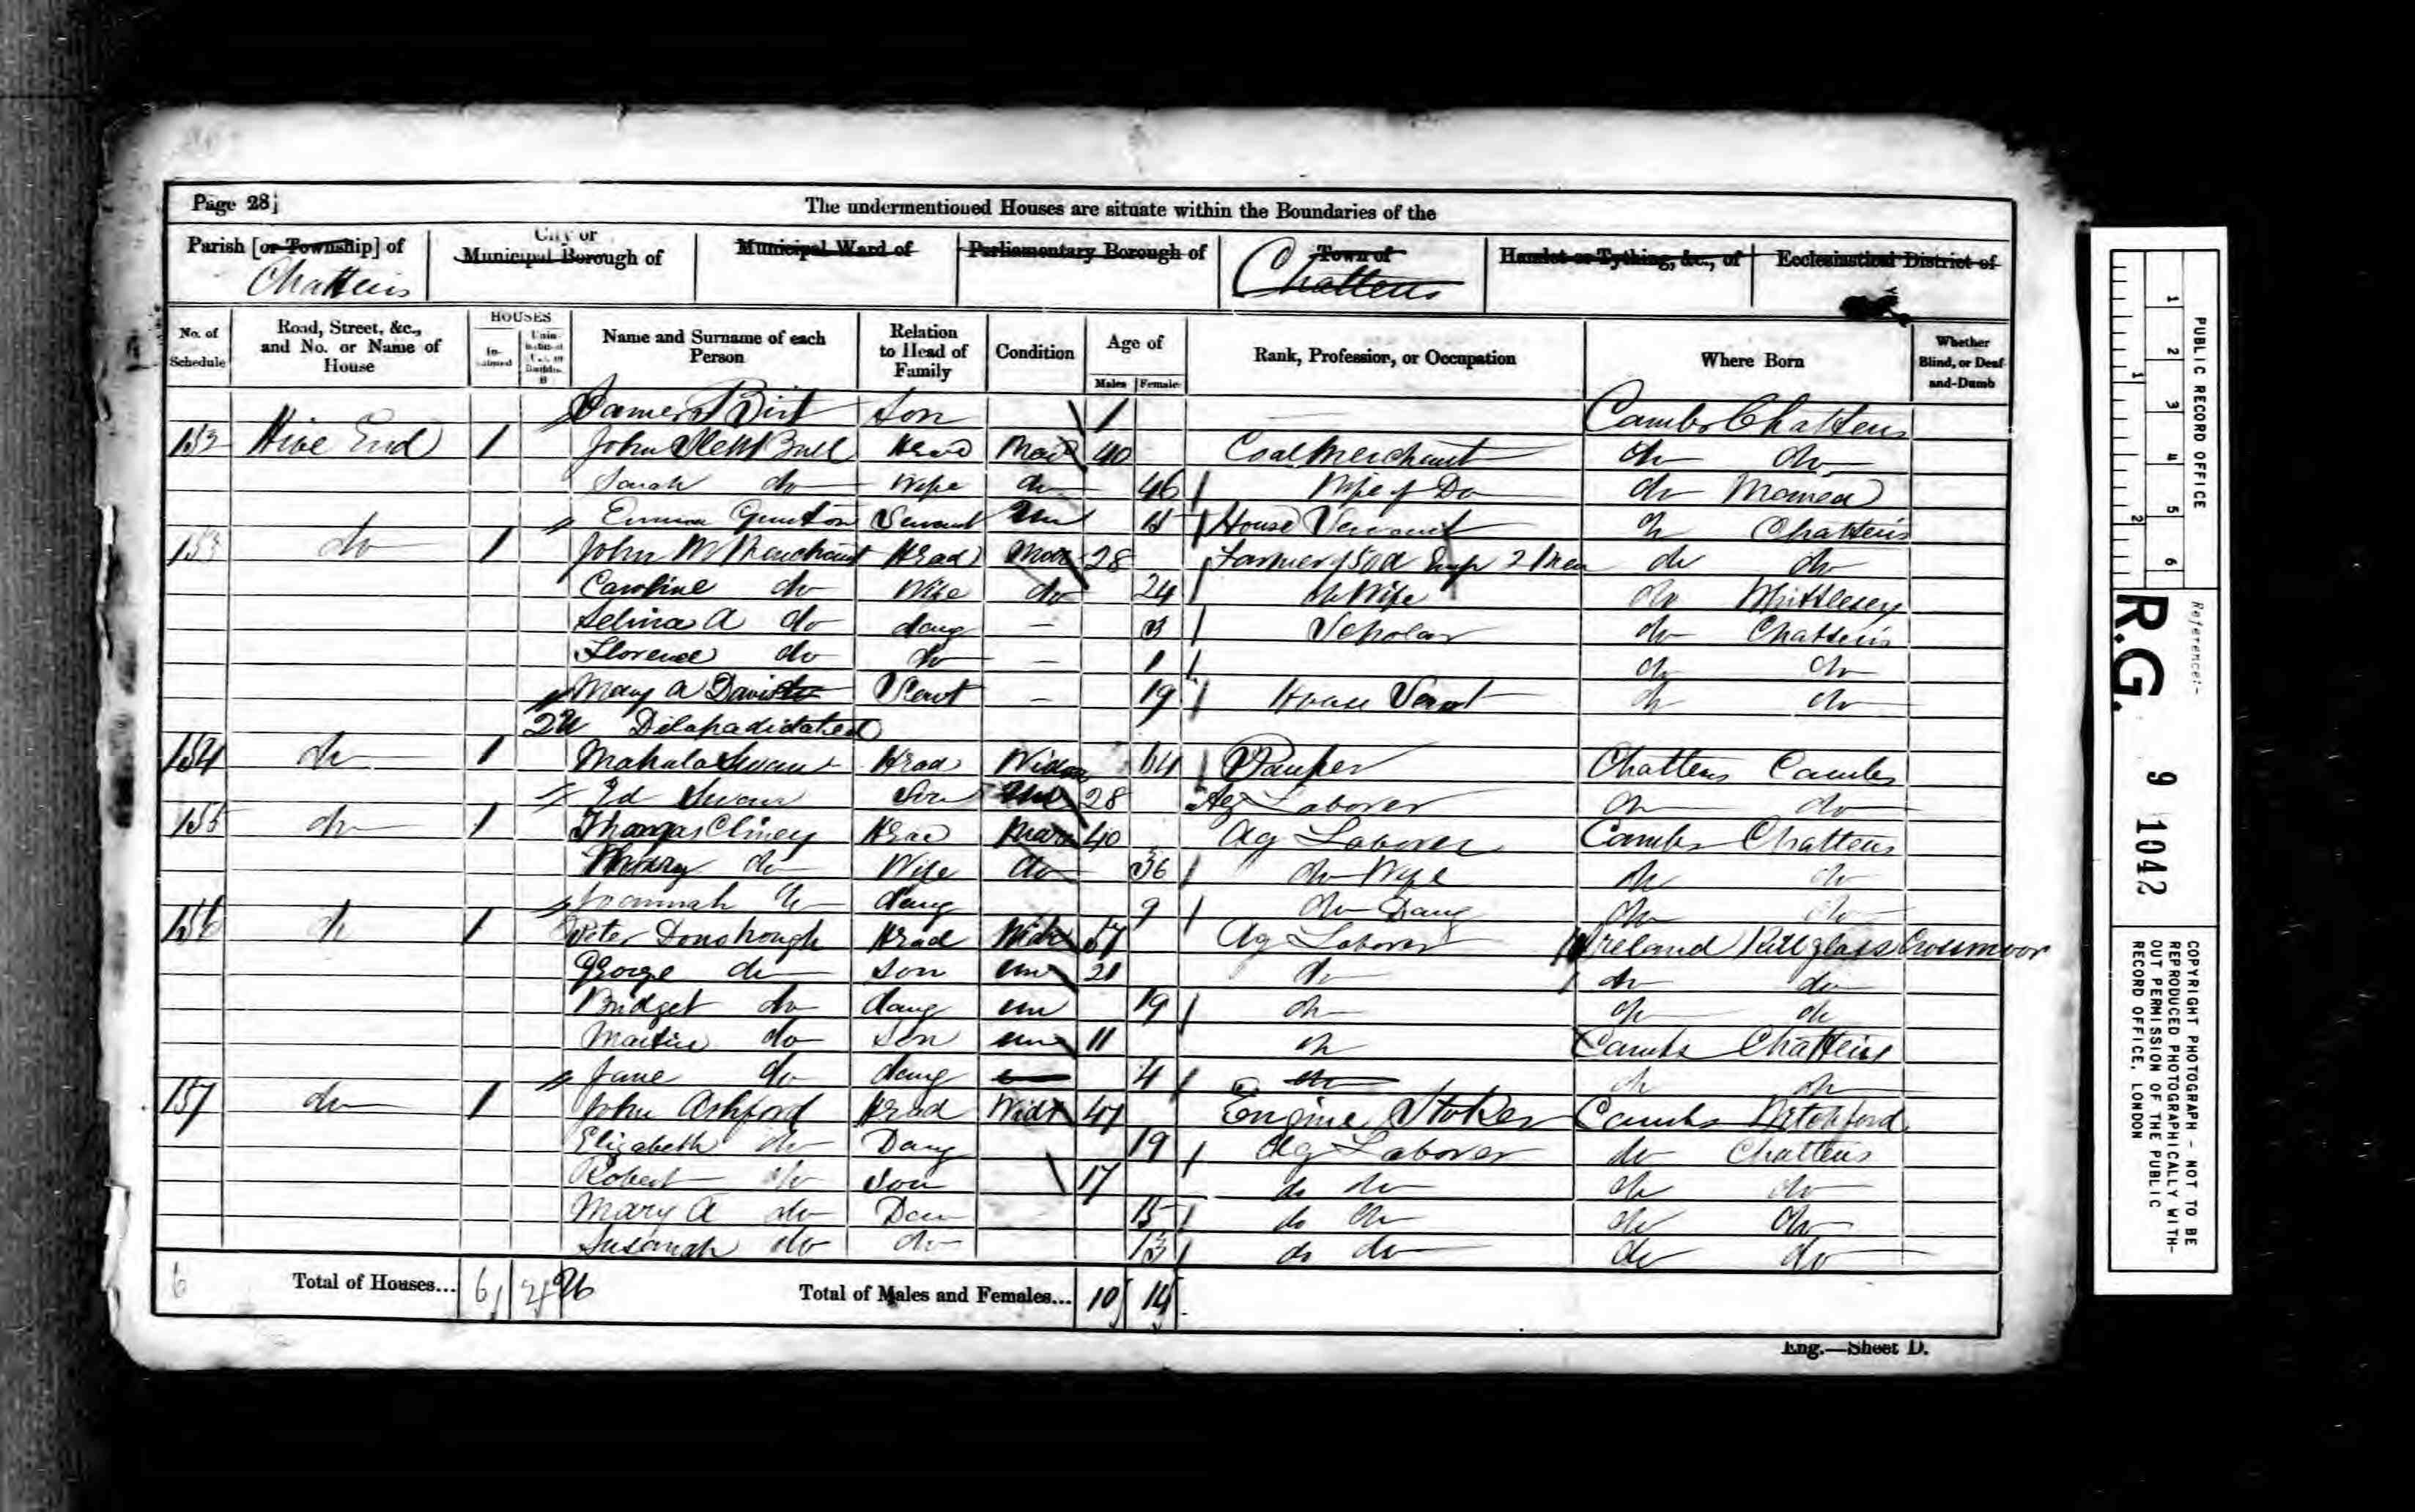 Page 28
The undermentioned Houses are situate within the Boundaries of the
Parish [or Township] of
Chatteris
City or Municipal Borough of
Municipal Ward of
Parliamentary Borough of
Town of
Chatteris
Hamlet or Tything, &c., of
Ecclesiastical District of
No. of Schedule
Road, Street, &c., and No. or Name of House
HOUSES
Name and Surname of each Person
Relation to Head of Family
Condition
Age of
Males
Females
Rank, Profession, or Occupation
Where Born
Whether Blind, or Deaf-and-Dumb
James Birt Son 1 Cambs Chatteris
152 Hive End 1 John Ball Head Mar 40 Coal Merchant do do
Sarah do Wife do 46 Wife of Do do Manea
Emma Gunton Servant Un 15 House Servant do Chatteris
153 do 1 John M Marchant Head Mar 28 Farmer of 50 a Emp 2 Men do do
Caroline do Wife do 24 do Wife do Whittlesey
Selina A do daug — 3 Scholar do Chatteris
Florence do do — 1 do do
Mary A Davis Servt — 19 House Servt do do
2 U Dilapadidated
154 do 1 Mahala Swan Head Widow 64 Pauper Chatteris Cambs
Ed Swan Son Un 28 Ag Laborer do do
155 do 1 Thomas Cliney Head Mar 40 Ag Laborer Cambs Chatteris
Mary do Wife do 36 do Wife do do
Joannah do daug 9 do Daug do do
156 do 1 Peter Donohough Head Widr 57 Ag Laborer Ireland Killglass
George do Son un 21 do do do
Bridget do daug un 19 do do do
Martin do Son un 11 do Cambs Chatteris
Jane do daug 4 do do do
157 do 1 John Ashford Head Widr 47 Engine Stoker Cambs
Elizabeth do Daug 19 Ag Laborer do Chatteris
Robert do Son 17 do do do do
Mary A do Dau 15 do do do do
Susanah do do 13 do do do do
6 Total of Houses... 6 2 U Total of Males and Females... 10 14
Eng.—Sheet D.
PUBLIC RECORD OFFICE
1 2 3 4 5 6
1 2
Reference:-
R.G. 9 1042
COPYRIGHT PHOTOGRAPH - NOT TO BE
REPRODUCED PHOTOGRAPHICALLY WITH-
OUT PERMISSION OF THE PUBLIC
RECORD OFFICE, LONDON